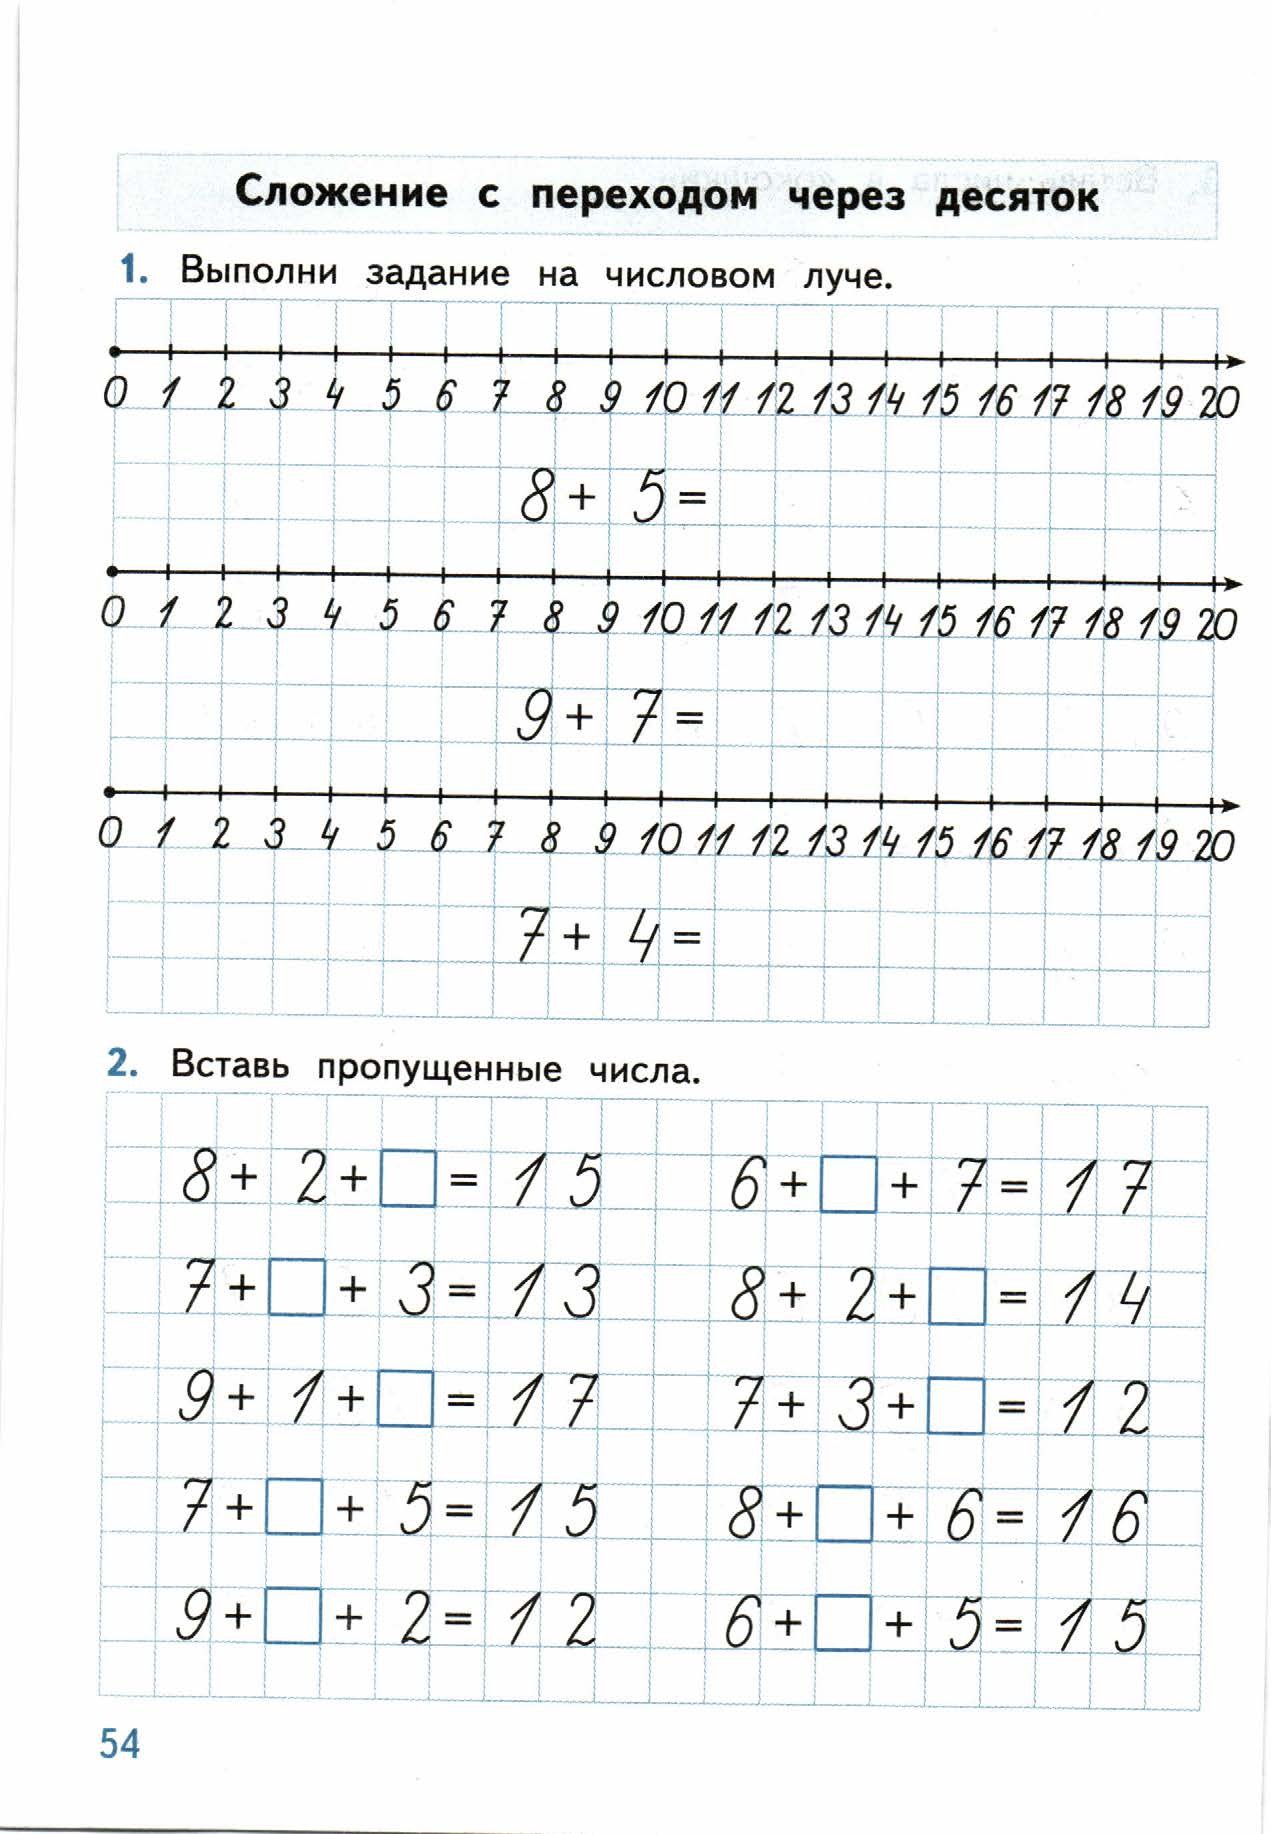 Сложение с переходом через десяток
1. Выполни задание на числовом луче.
0 1 2 3 4 5 6 7 8 9 10 11 12 13 14 15 16 17 18 19 20
8 + 5 =
0 1 2 3 4 5 6 7 8 9 10 11 12 13 14 15 16 17 18 19 20
9 + 7 =
0 1 2 3 4 5 6 7 8 9 10 11 12 13 14 15 16 17 18 19 20
7 + 4 =
2. Вставь пропущенные числа.
8 + 2 + □ = 15 6 + □ + 7 = 17
7 + □ + 3 = 13 8 + 2 + □ = 14
9 + 1 + □ = 17 7 + 3 + □ = 12
7 + □ + 5 = 15 8 + □ + 6 = 16
9 + □ + 2 = 12 6 + □ + 5 = 15
54